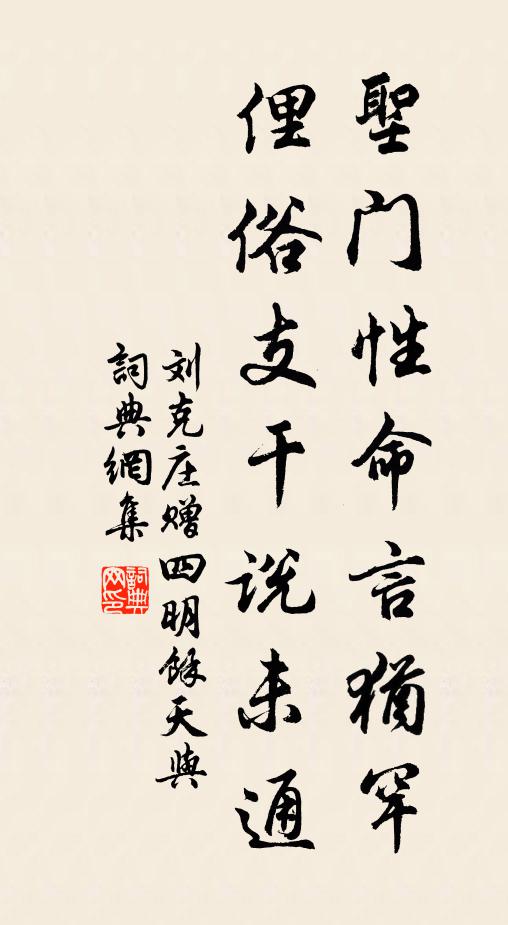 聖门性命言猶罕
俚俗支干说未通
刘克庄赠四明馀天與
詞典網集
詞典网印